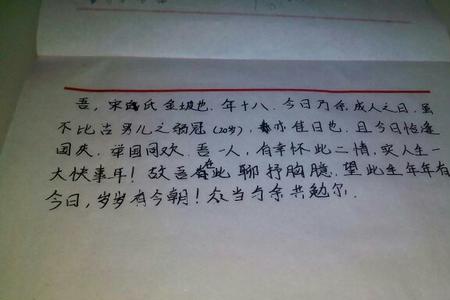 吾，宋氏金坡也.年十八.今日乃余成人之日.虽
不比古男儿之弱冠(20岁),亦佳日也.且今日恰逢
国庆,举国同欢.吾一人,有幸怀此二情,实人生一
大快事耳!故吾在此聊抒胸臆.望此生年年有
今日,岁岁有今朝!众当与余共勉尔.